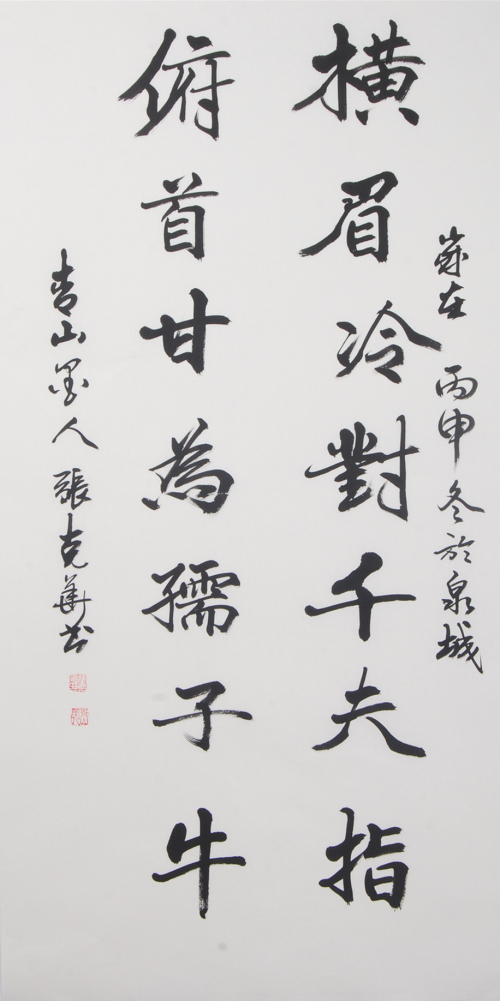 歲在丙申冬於泉城
橫眉冷對千夫指
俯首甘為孺子牛
青山墨人張克華书